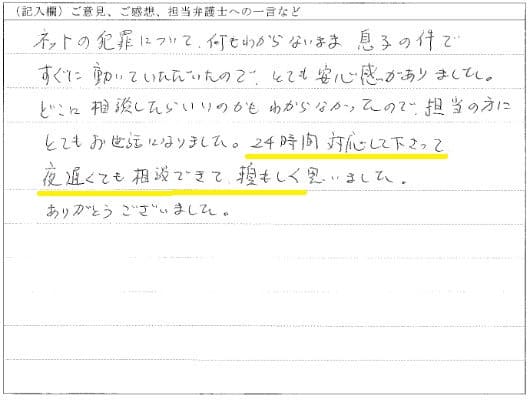 （記入欄）ご意見、ご感想、担当弁護士への一言など
ネットの犯罪について、何もわからないまま 息子の件で
すぐに動いていただいたので、とても安心感がありました。
どこに相談したらいいのかもわからなかったので、担当の方に
とてもお世話になりました。24時間対応して下さって
夜遅くても相談できて、頼もしく思いました。
ありがとうございました。